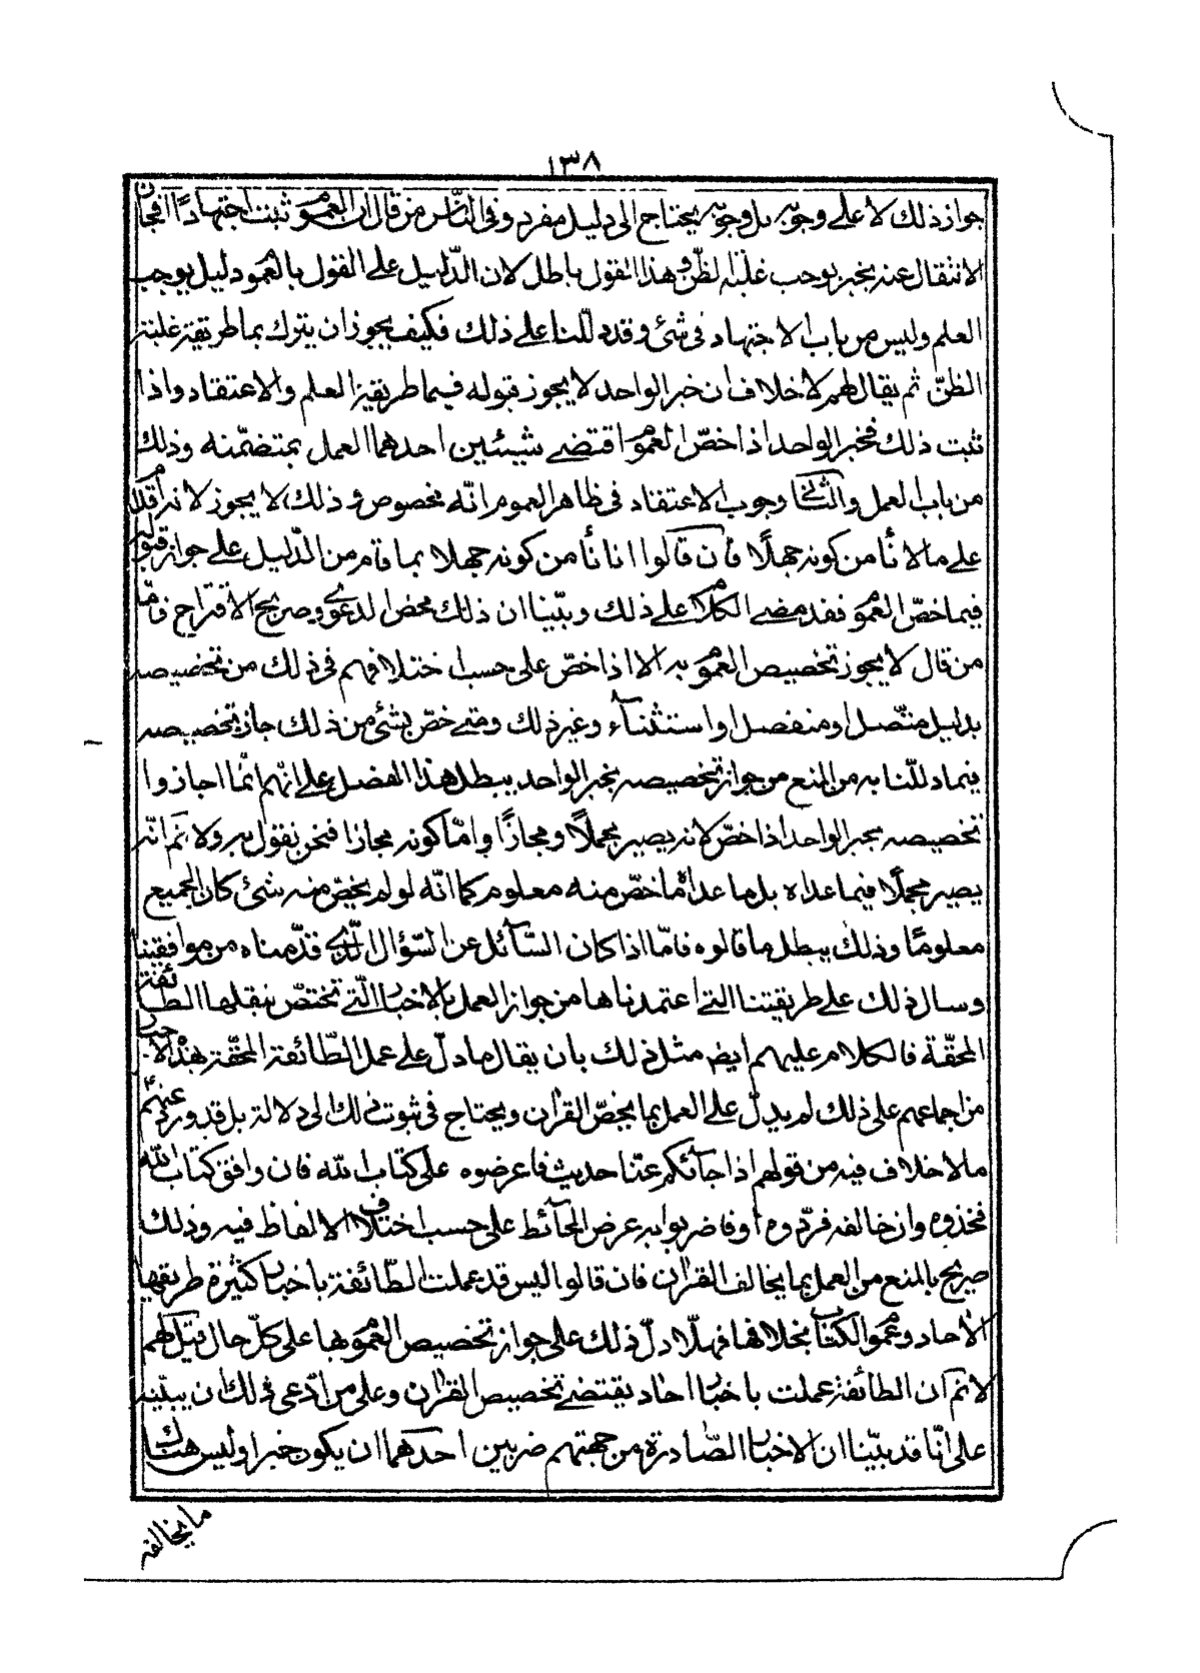 ١٣٨
جواز ذلك لا على وجوبه بل وجوبه يحتاج الى دليل مفرد وفى النّاس من قال ان العموم ثبت اجتهادًا فجاز
الانتقال عنه بخبر يوجب غلبة الظنّ وهذا القول باطل لان الدّليل على القول بالعموم دليل يوجب
العلم وليس من باب الاجتهاد فى شئ وقد دللنا على ذلك فكيف يجوز ان يترك بما طريقة غلبة
الظنّ ثم يقال لهم لا خلاف ان خبر الواحد لا يجوز قبوله فيما طريقة العلم والاعتقاد واذا
ثبت ذلك فخبر الواحد اذا خصّ العموم اقتضى شيئين احدهما العمل بمتضمّنه وذلك
من باب العمل والثانى وجوب الاعتقاد فى ظاهر العموم انّه مخصوص وذلك لا يجوز لانه اقدام
على ما لا نأمن كونه جهلًا فان قالوا انا نأمن كونه جهلا بما قام من الدّليل على جواز قبوله
فيما خصّ العموم فقد مضى الكلام على ذلك وبيّنا ان ذلك محض الدعوى وصريح الاقتراح فامّا
من قال لا يجوز تخصيص العموم به الا اذا خصّ على حسب اختلافهم فى ذلك من تخصيصه
بدليل متّصل او منفصل او استثنآء وغير ذلك ومتى خصّ بشئ من ذلك جاز تخصيصه
فيما دللنا به من المنع من جواز تخصيصه بخبر الواحد يبطل هذا الفصل على انّهم انّما اجازوا
تخصيصه بخبر الواحد اذا خصّ لانه يصير مجملًا ومجازًا وامّا كونه مجازا فنحن نقول به ولا نم انّه
يصير مجملًا فيما عداه بل ما عدا ما خصّ منه معلوم كما انّه لو لم يخصّ منه شئ كان الجميع
معلومًا وذلك يبطل ما قالوه فامّا اذا كان السّآئل عن السّؤال الّذى قدّمناه من موافقينا
وسال ذلك على طريقتنا التى اعتمدناها من جواز العمل بالاخبار الّتى تختصّ بنقلها الطّائفة
المحقّة فالكلام عليهم ايض مثل ذلك بان يقال ما دلّ على عمل الطّائفة المحقّة بهذه الاخبار
من اجماعهم على ذلك لم يدلّ على العمل بما يخصّ القرآن ويحتاج فى ثبوت ذلك الى دلالة بل قد ورد عنهم
ما لا خلاف فيه من قولهم اذا جآئكم عنّا حديث فاعرضوه على كتاب الله فان وافق كتاب الله
فخذوه وان خالفه فردّوه او فاضربوا به عرض الحآئط على حسب اختلاف الالفاظ فيه وذلك
صريح بالمنع من العمل بما يخالف القرآن فان قالوا اليس قد عملت الطّائفة باخبار كثيرة طريقها
الآحاد وعموم الكتاب بخلافها فهلّا دلّ ذلك على جواز تخصيص العموم بها على كلّ حال قيل لهم
لا نم ان الطائفة عملت باخبار احاد يقتضى تخصيص القرآن وعلى من ادّعى ذلك ان يبيّنه
على انّا قد بيّنا ان الاخبار الصّادرة من جهتهم ضربين احدهما ان يكون خبرا وليس هناك
ما يخالفه